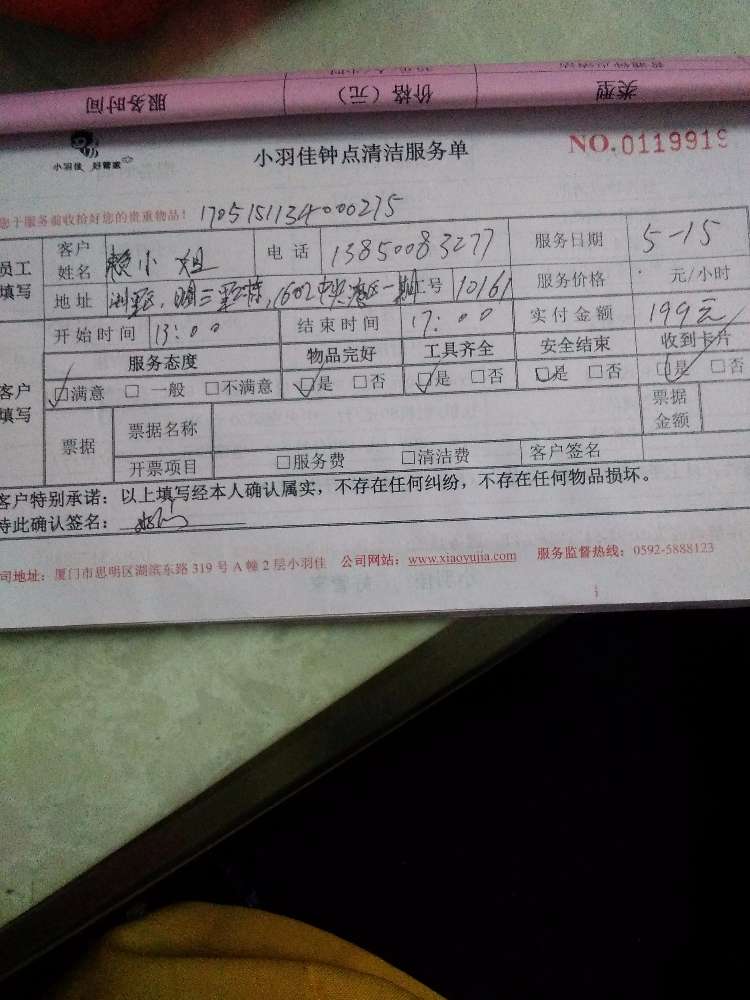 服务时间 价格（元） 类型
小羽佳 好管家
小羽佳钟点清洁服务单
NO.0119919
您于服务前收拾好您的贵重物品！ 1705151134000275
员工填写 客户姓名 赖小姐 电话 13850083277 服务日期 5-15
地址 1602 一期 工号 10161 服务价格 元/小时
开始时间 13:00 结束时间 17:00 实付金额 199元
客户填写 服务态度 物品完好 工具齐全 安全结束 收到卡片
☑满意 □一般 □不满意 ☑是 □否 ☑是 □否 ☑是 □否 ☑是 □否
票据 票据名称 票据金额
开票项目 □服务费 □清洁费 客户签名
客户特别承诺：以上填写经本人确认属实，不存在任何纠纷，不存在任何物品损坏。
特此确认签名：
司地址：厦门市思明区湖滨东路319号A幢2层小羽佳 公司网站：www.xiaoyujia.com 服务监督热线：0592-5888123